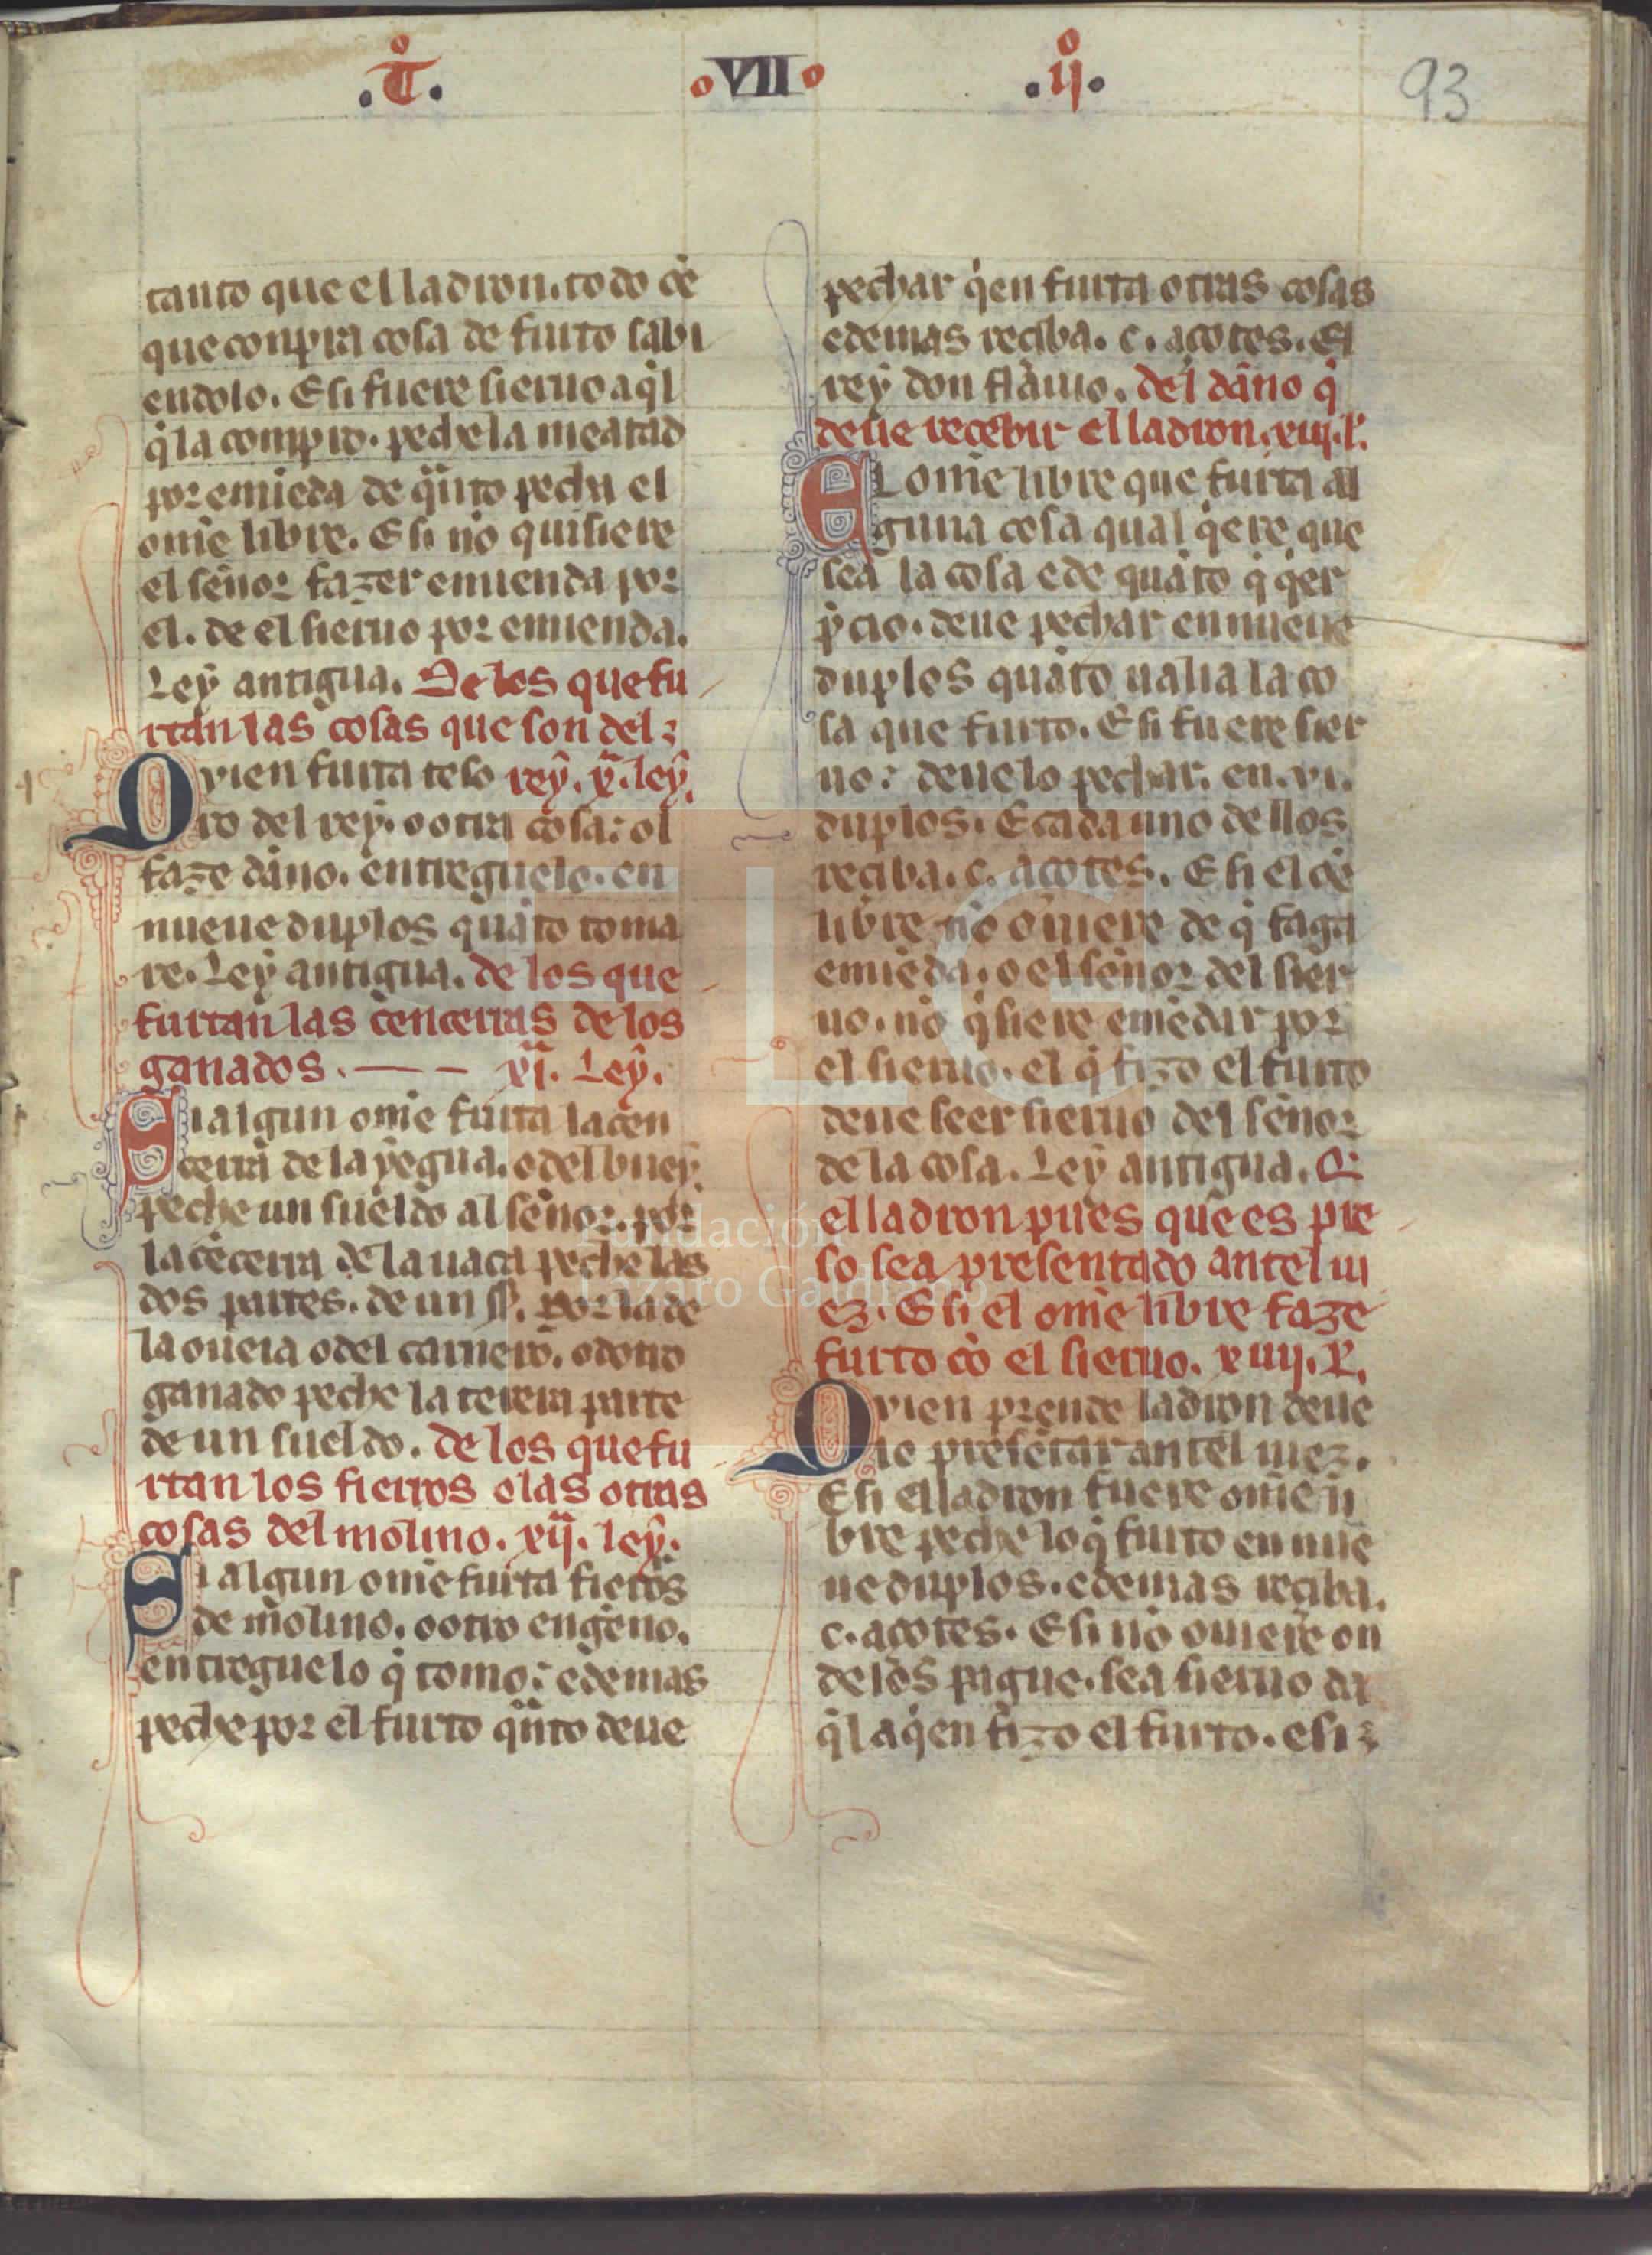 .T̊. ·VII· .ij̊.
93
tanto que el ladron. todo oē
que conpra cosa de furto sabi
endolo. E si fuere sieruo aq̇l
q̇ la compro. peche la meatad
por emiēda de qͣnto pechა el
om̄e libre. E si nō quisiere
el sēnor fazer emienda por
el. de el sieruo por emienda.
Ley antigua. De los que fu
rtan las cosas que son del
Quien furta teso rey. xͣ. ley.
ro del rey. o otra cosa: ol
faze dāno. entreguelo. en
nueue duplos quāto toma
re. Ley antigua. de los que
furtan las çencerras de los
ganados. xjͣ. Ley.
Si algun om̄e furta la cen
cerra de la yegua. o del buey.
peche un sueldo al sēnor. por
la cēcerra de la uaca peche las
dos partes. de un sſ. por la de
la oueia o del carnero. o dotro
ganado peche la tercera parte
de un sueldo. de los que fu
rtan los fierros o las otras
cosas del molino. xijͣ. ley.
Si algun om̄e furta fierros
de molino. o otro engēno.
entreguelo q̇ tomo: e demas
peche por el furto qͣnto deue
pechar q̇en furta otras cosas
e demas reciba. c. açotes. El
rey don flauio. del dāno q̇
deue recebir el ladron. xiij. l.
El om̄e libre que furta al
guna cosa qual q̇ere que
sea la cosa e de quāto q̇ q̇er
ṗcio. deue pechar en nueue
duples quāto ualia la co
sa que furto. E si fuere sier
uo: deuelo pechar. en. vi.
duplos. E cada uno dellos
reciba. c. açotes. E si el oē
libre nō ouiere de q̇ faga
emiēda. o el sēnor del sier
uo. nō q̇siere emēdar por
el sieruo. el q̇ fizo el furto
deue seer sieruo del sēnor
de la cosa. Ley antigua. Q̄
el ladron pues que es pre
so sea presentado antel iu
ez. E si el om̄e libre faze
furto cō el sieruo. xiiij. L.
Quien prende ladron deue
lo presētar antel iuez.
E si el ladron fuere om̄e li
bre peche lo q̇ furto en nue
ue duplos. e demas reciba.
c. açotes. E si nō ouiere on
de los pague. sea sieruo da
q̇l a q̇en fizo el furto. e si
FLG
Fundación
Lázaro Galdiano